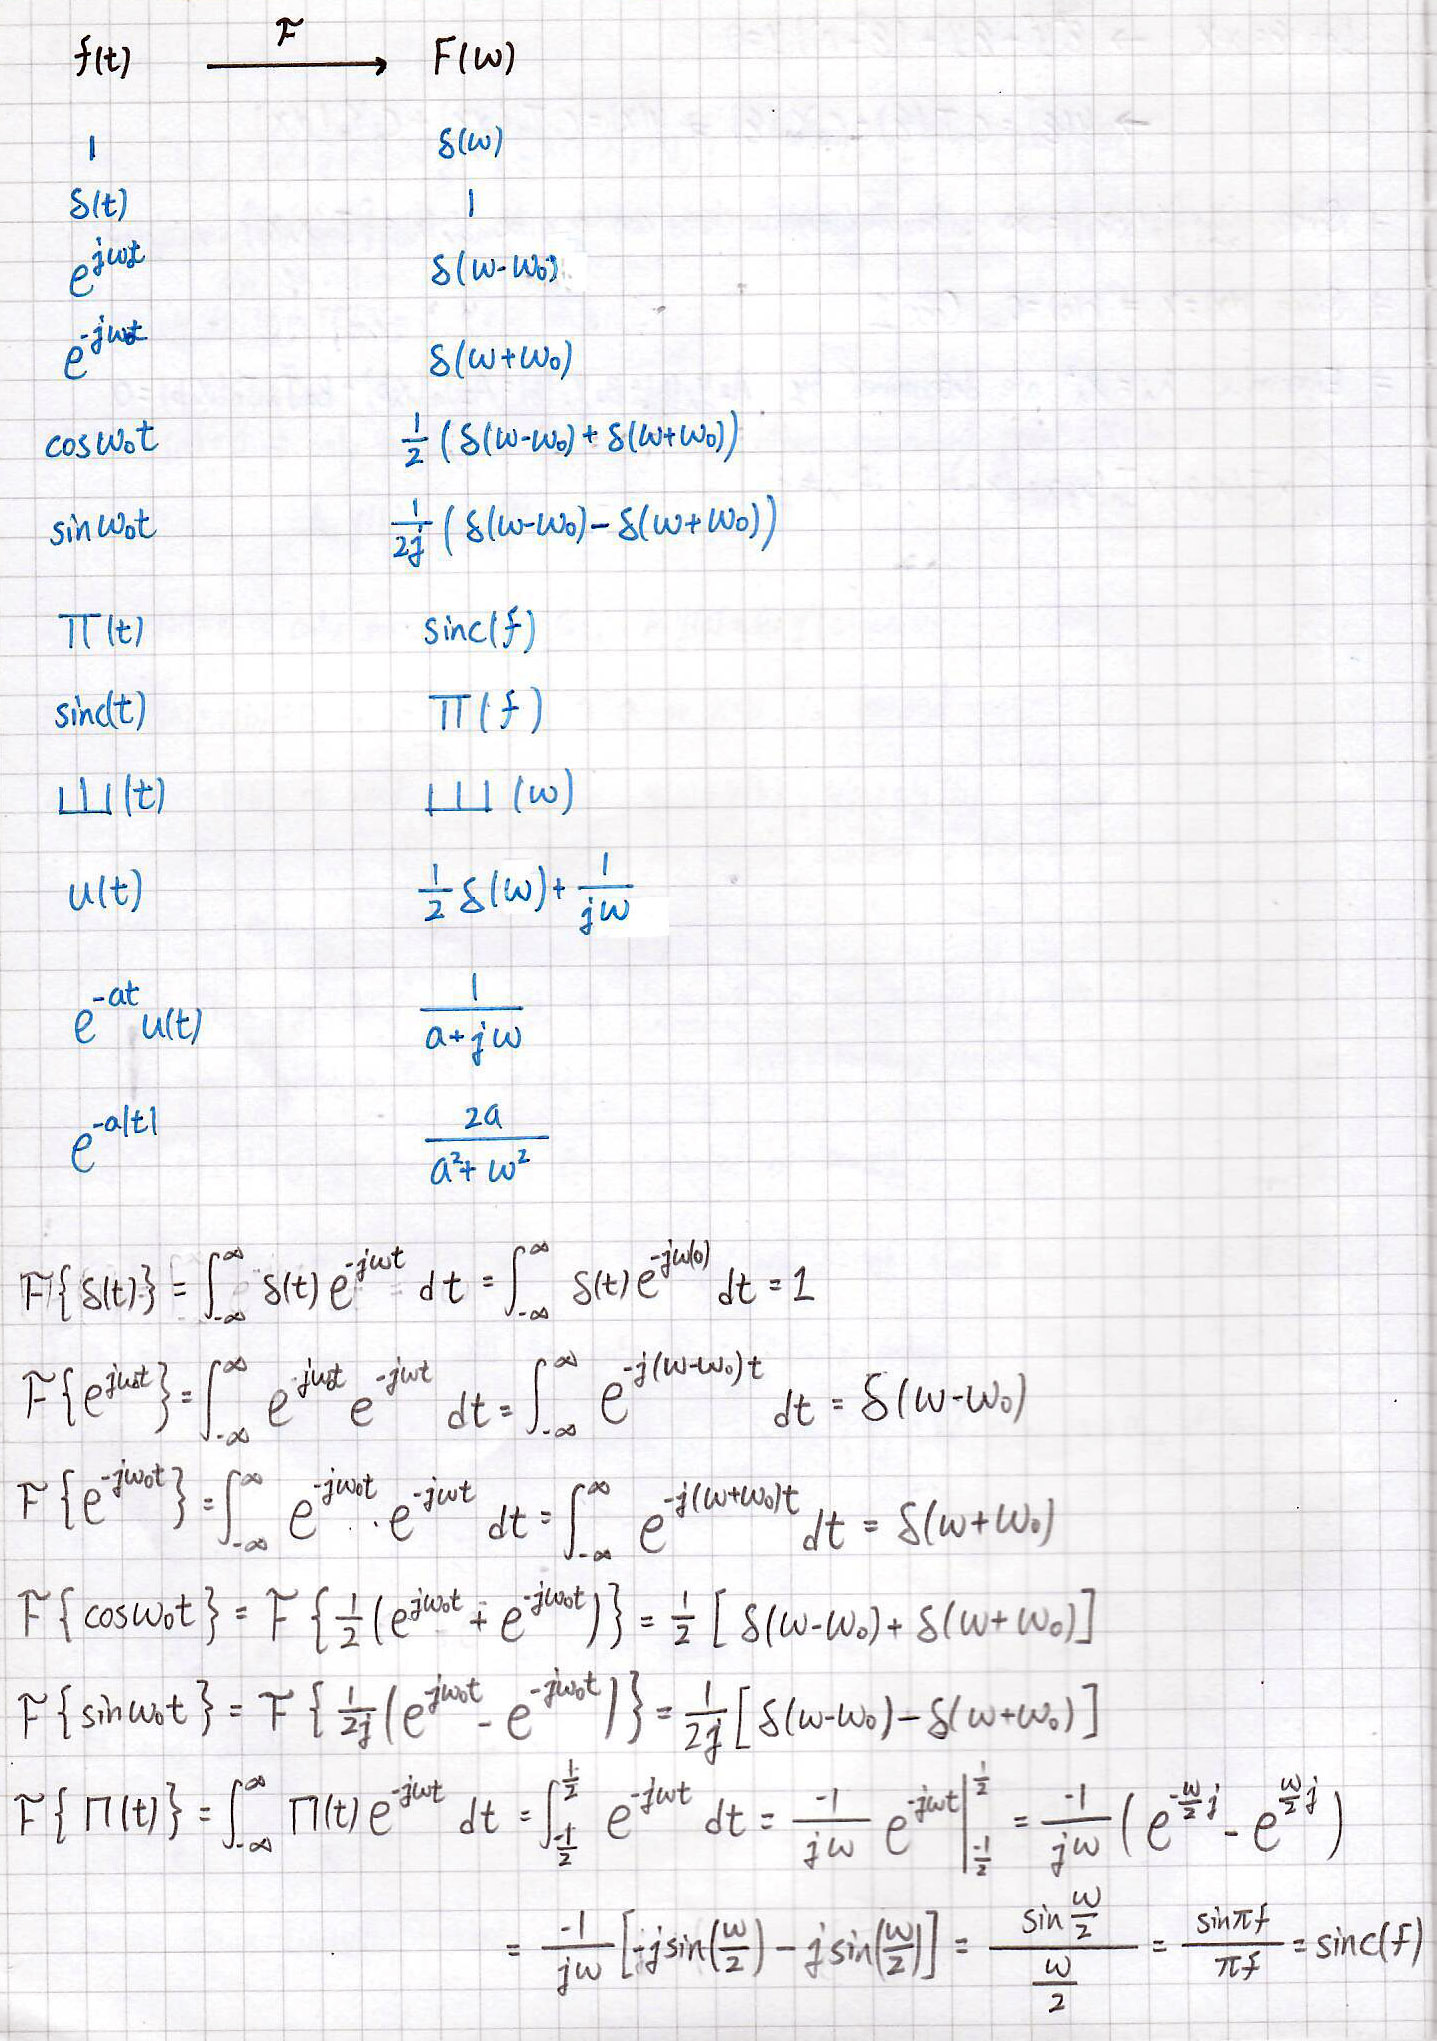 f(t) —F→ F(ω)
1 δ(ω)
δ(t) 1
e^{jω₀t} δ(ω-ω₀)
e^{-jω₀t} δ(ω+ω₀)
cosω₀t 1/2 (δ(ω-ω₀)+δ(ω+ω₀))
sinω₀t 1/2j (δ(ω-ω₀)-δ(ω+ω₀))
Π(t) sinc(f)
sinc(t) Π(f)
Ш(t) Ш(ω)
u(t) 1/2 δ(ω)+1/(jω)
e^{-at}u(t) 1/(a+jω)
e^{-a|t|} 2a/(a²+ω²)
F{δ(t)} = ∫_{-∞}^{∞} δ(t)e^{-jωt} dt = ∫_{-∞}^{∞} δ(t)e^{-jω(0)} dt = 1
F{e^{jω₀t}} = ∫_{-∞}^{∞} e^{jω₀t} e^{-jωt} dt = ∫_{-∞}^{∞} e^{-j(ω-ω₀)t} dt = δ(ω-ω₀)
F{e^{-jω₀t}} = ∫_{-∞}^{∞} e^{-jω₀t}·e^{-jωt} dt = ∫_{-∞}^{∞} e^{-j(ω+ω₀)t} dt = δ(ω+ω₀)
F{cosω₀t} = F{1/2(e^{jω₀t}+e^{-jω₀t})} = 1/2[δ(ω-ω₀)+δ(ω+ω₀)]
F{sinω₀t} = F{1/2j(e^{jω₀t}-e^{-jω₀t})} = 1/2j[δ(ω-ω₀)-δ(ω+ω₀)]
F{Π(t)} = ∫_{-∞}^{∞} Π(t)e^{-jωt} dt = ∫_{-1/2}^{1/2} e^{-jωt} dt = -1/(jω) e^{-jωt}|_{-1/2}^{1/2} = -1/(jω) (e^{-ω/2 j}-e^{ω/2 j})
= -1/(jω) [-jsin(ω/2)-jsin(ω/2)] = sin(ω/2)/(ω/2) = sinπf/πf = sinc(f)